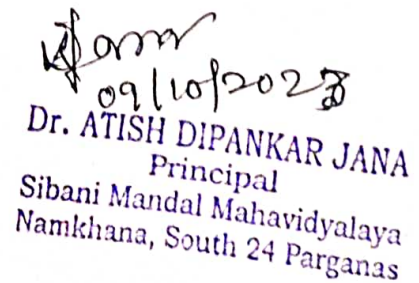 09/10/2023
Dr. ATISH DIPANKAR JANA
Principal
Sibani Mandal Mahavidyalaya
Namkhana, South 24 Parganas